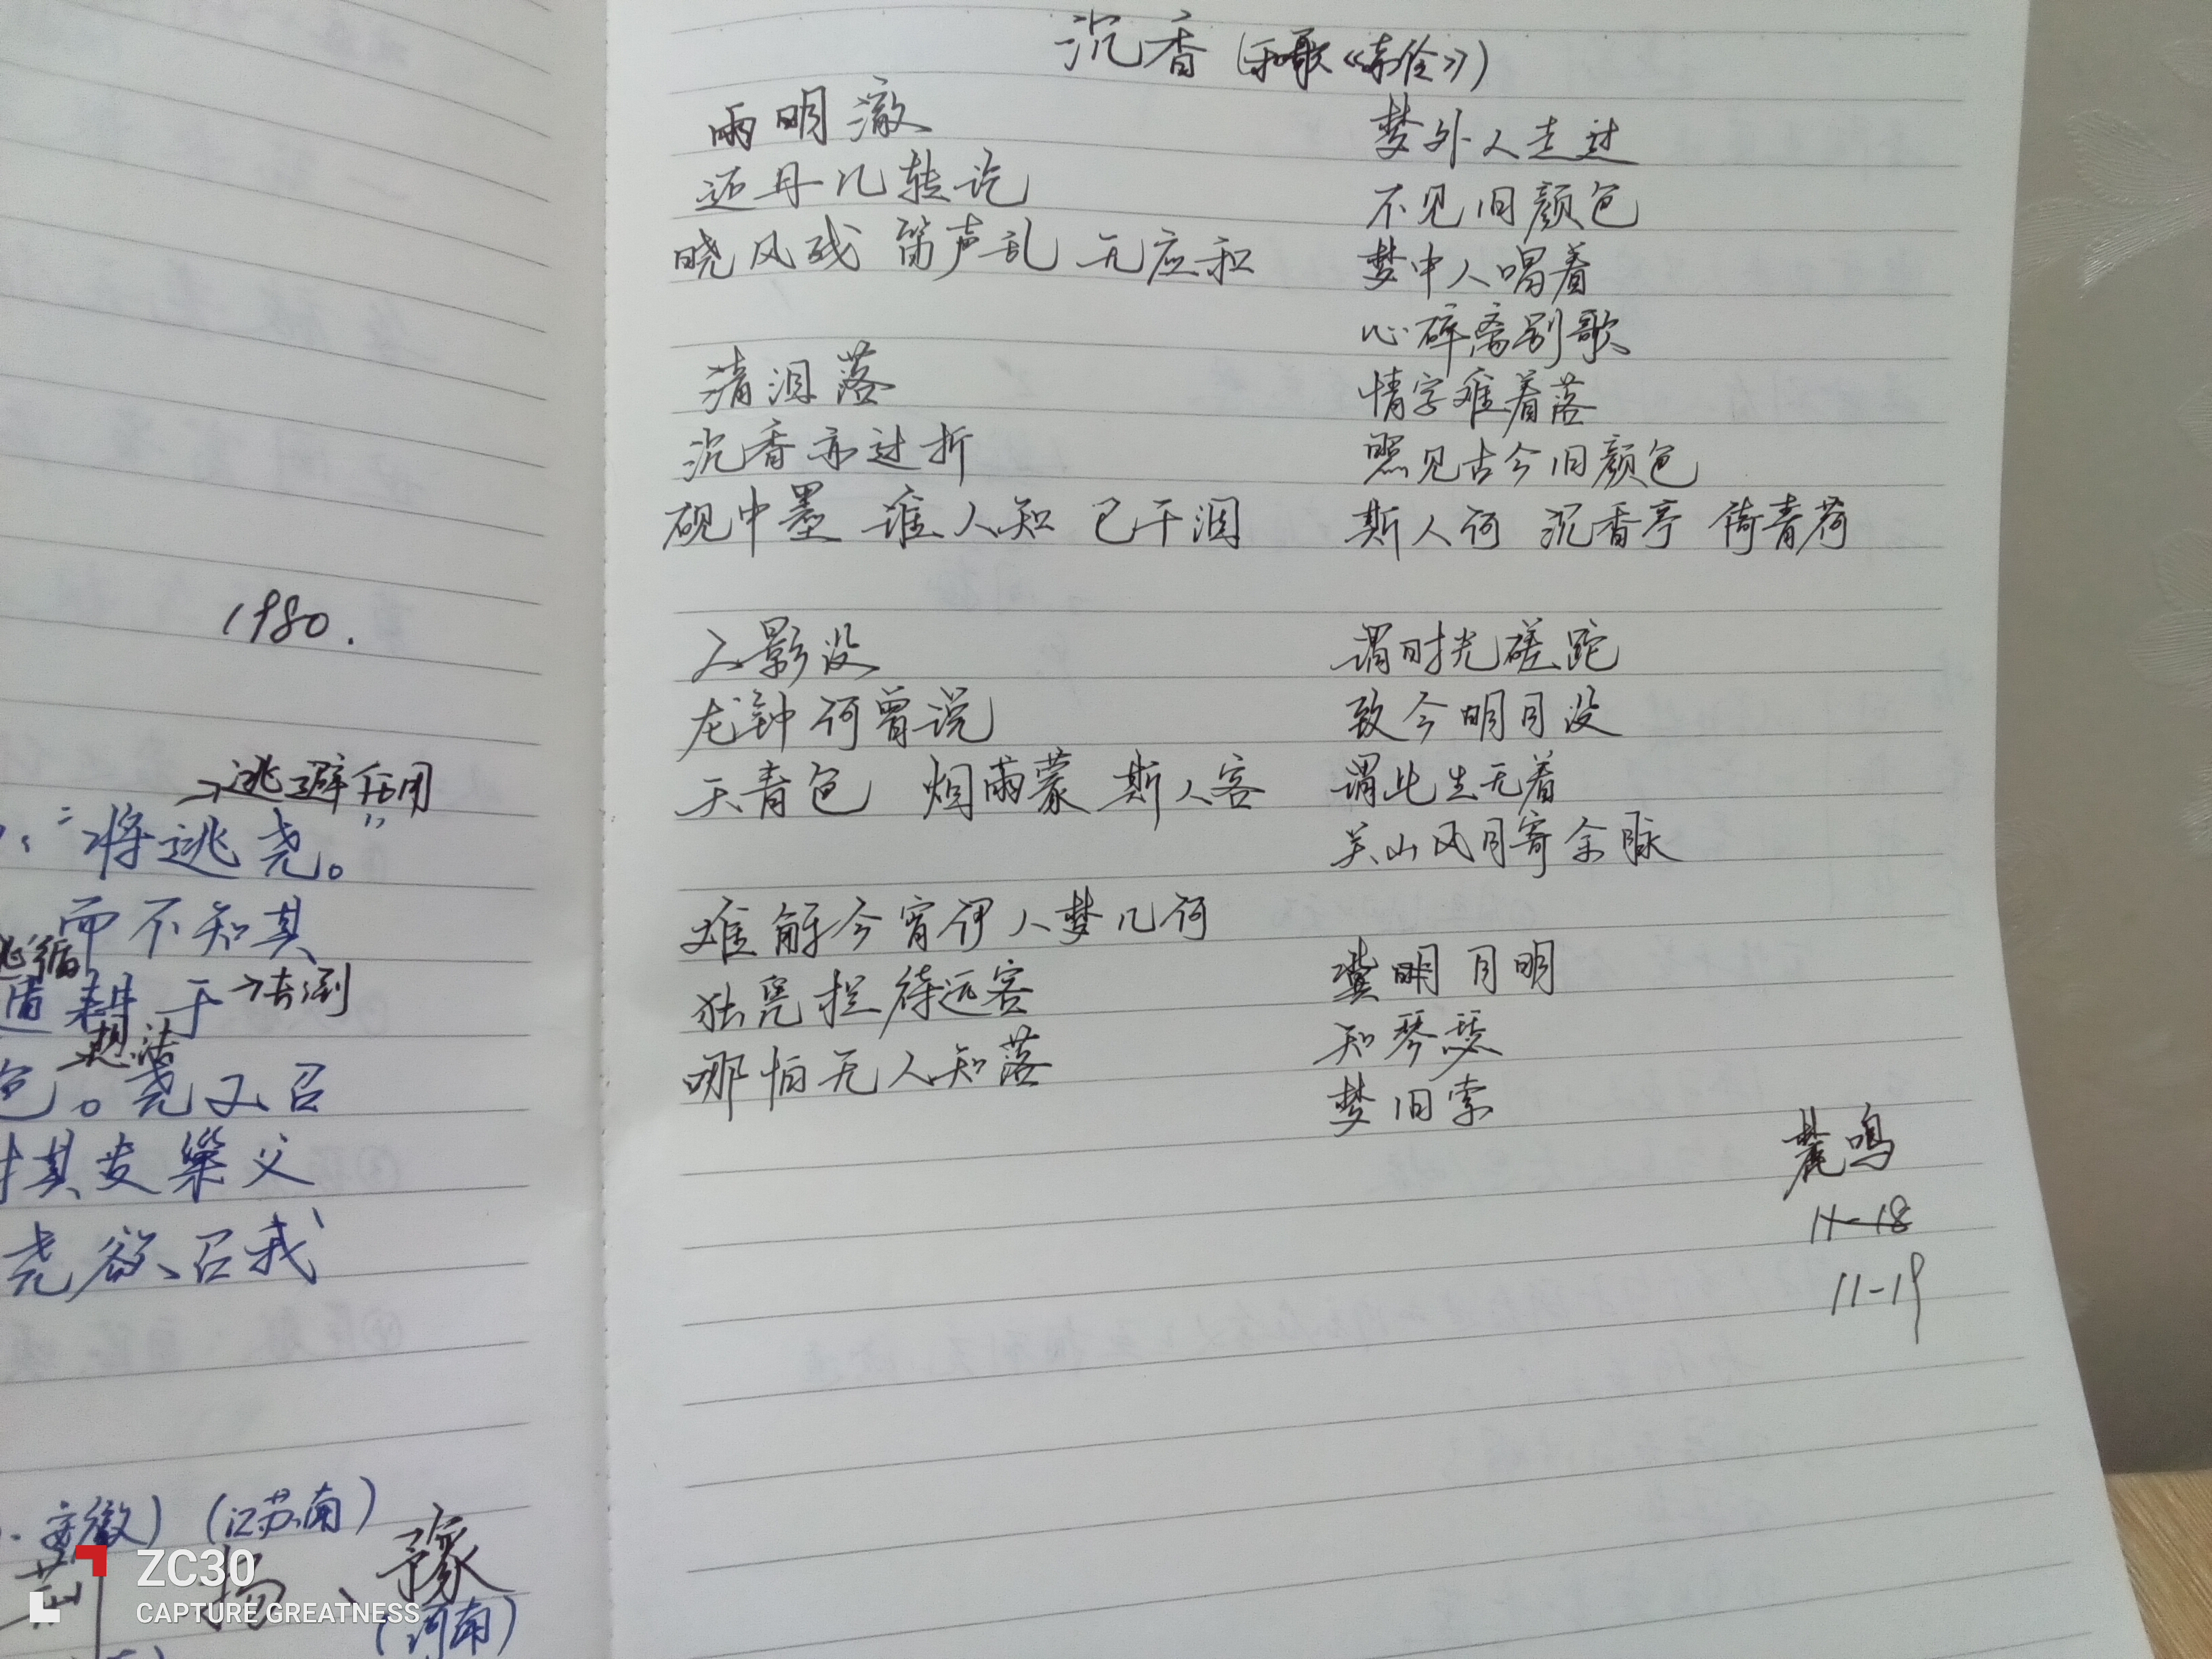 1980.
→逃避 活用
“将逃尧。”
而不知其
遁耕于→去到
想法
色。尧又召
其友巢父
尧欲召我
安徽）（江苏南）
荆 扬、豫
（河南）
沉香（和歌《索伦》）
雨明澈
还丹几转讫
晓风残 笛声乱 无应和
清泪落
沉香亦过折
砚中墨 谁人知 已干涸
人影没
龙钟何曾说
天青色 烟雨蒙 斯人客
难解今宵何人梦几何
独凭栏待远客
哪怕无人知落
梦外人走过
不见旧颜色
梦中人唱着
心碎离别歌
情字难着落
照见古今旧颜色
斯人何 沉香亭 倚青荷
谓时光磋跎
致今明月没
谓此生无着
关山风月寄余脉
冀明月明
知琴瑟
梦旧索
麓鸣
11-18
11-19
ZC30
CAPTURE GREATNESS